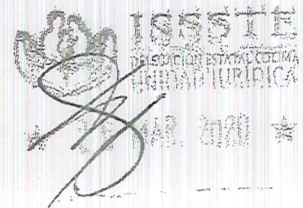 ISSSTE
DELEGACIÓN ESTATAL COLIMA
UNIDAD JURIDICA
MAR. 2020